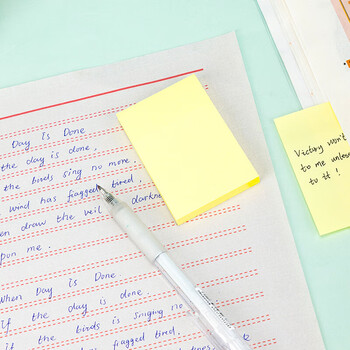 Day Is Done
the day is done.
the birds sing no more.
wind has fragged tired.
draw the veil darkn
upon me.
When Day Is Done
If the day is done.
If the birds is singing no
fragged tired.
Victory won't
to me unless
to it !